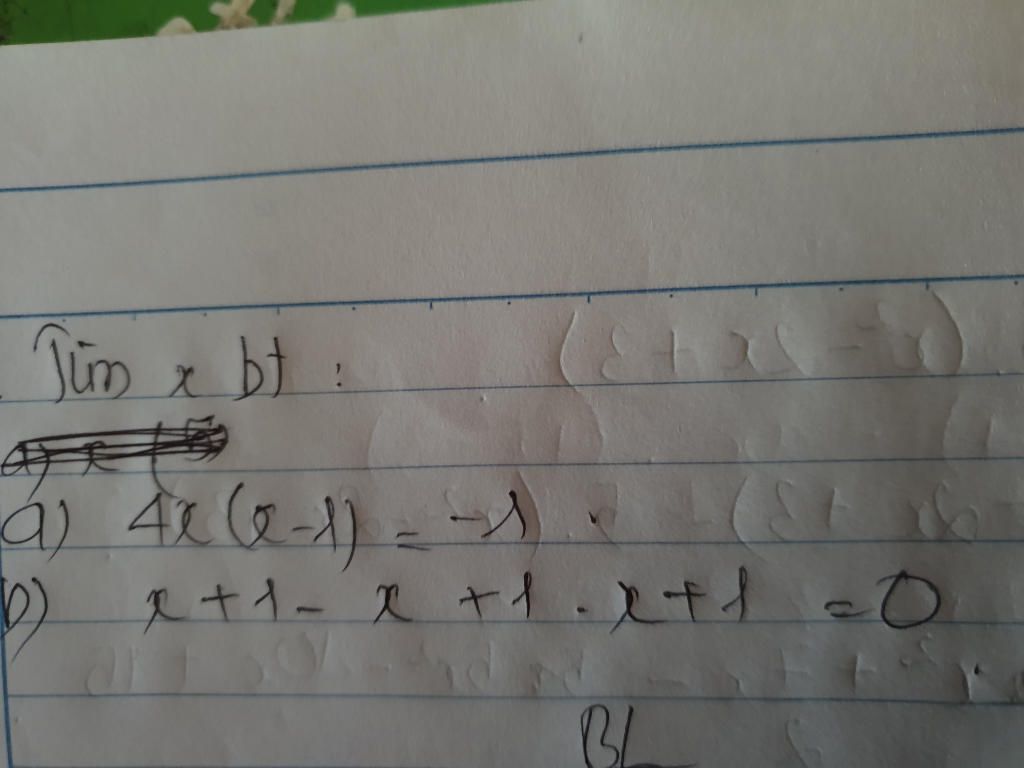 Tìm x bt :
a) 4x(x-1) = -1
b) x+1- x +1 . x+1 =0
BL